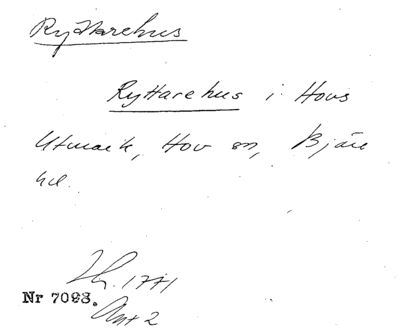 Ryttarehus
Ryttarehus i Hovs
Utmark, Hov sn, Bjäre
hd.
1771
Nr 7093.
Akt 2